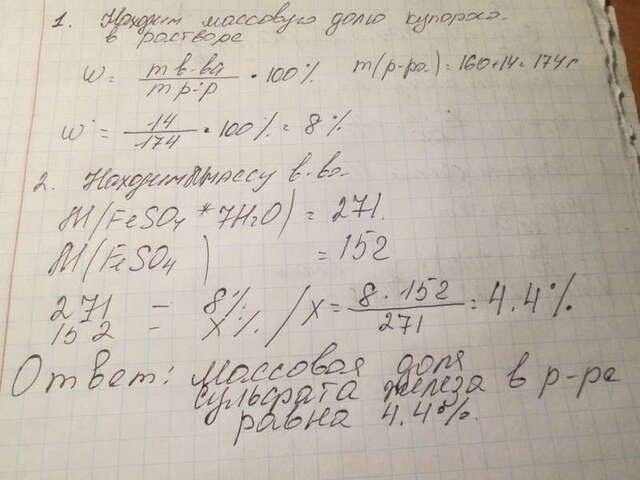 1. Находим массовую долю купороса
в растворе
w = m в-ва / m р-р • 100% m(р-ра) = 160+14 = 174 г
w = 14 / 174 • 100% = 8%
2. Находим массу в-ва.
M(FeSO4 * 7H2O) = 271.
M(FeSO4) = 152
271 – 8%
152 – x% / x = 8 · 152 / 271 = 4.4%
Ответ: массовая доля
сульфата железа в р-ре
равна 4.4%.